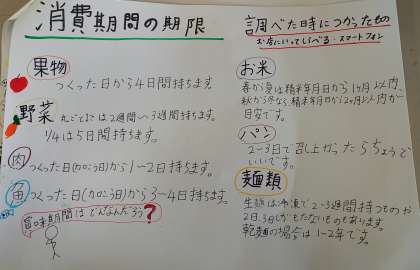 消費期間の期限
果物
つくった日から4日間持ちます
野菜 丸ごと は2週間〜3週間持ちます。
1/4は5日間持ちます。
肉 つくった日(カロこう日)から1〜2日持ちます。
魚 つくった日(カロこう日)から3〜4日持ちます。
賞味期間はどんなんだろう?
調べた時につかったもの
お店にいってしらべる・スマートフォン
お米
春か夏は精米年月日から1ヶ月以内、
秋か冬なら精米年月日から2ヶ月以内が
目安です。
パン
2〜3日で召し上がったらちょうど
いいです。
麺類
生麺は冷凍で2〜3週間持つものや
2日、3日しかもたないものもあります。
乾麺の場合は1〜2年です。